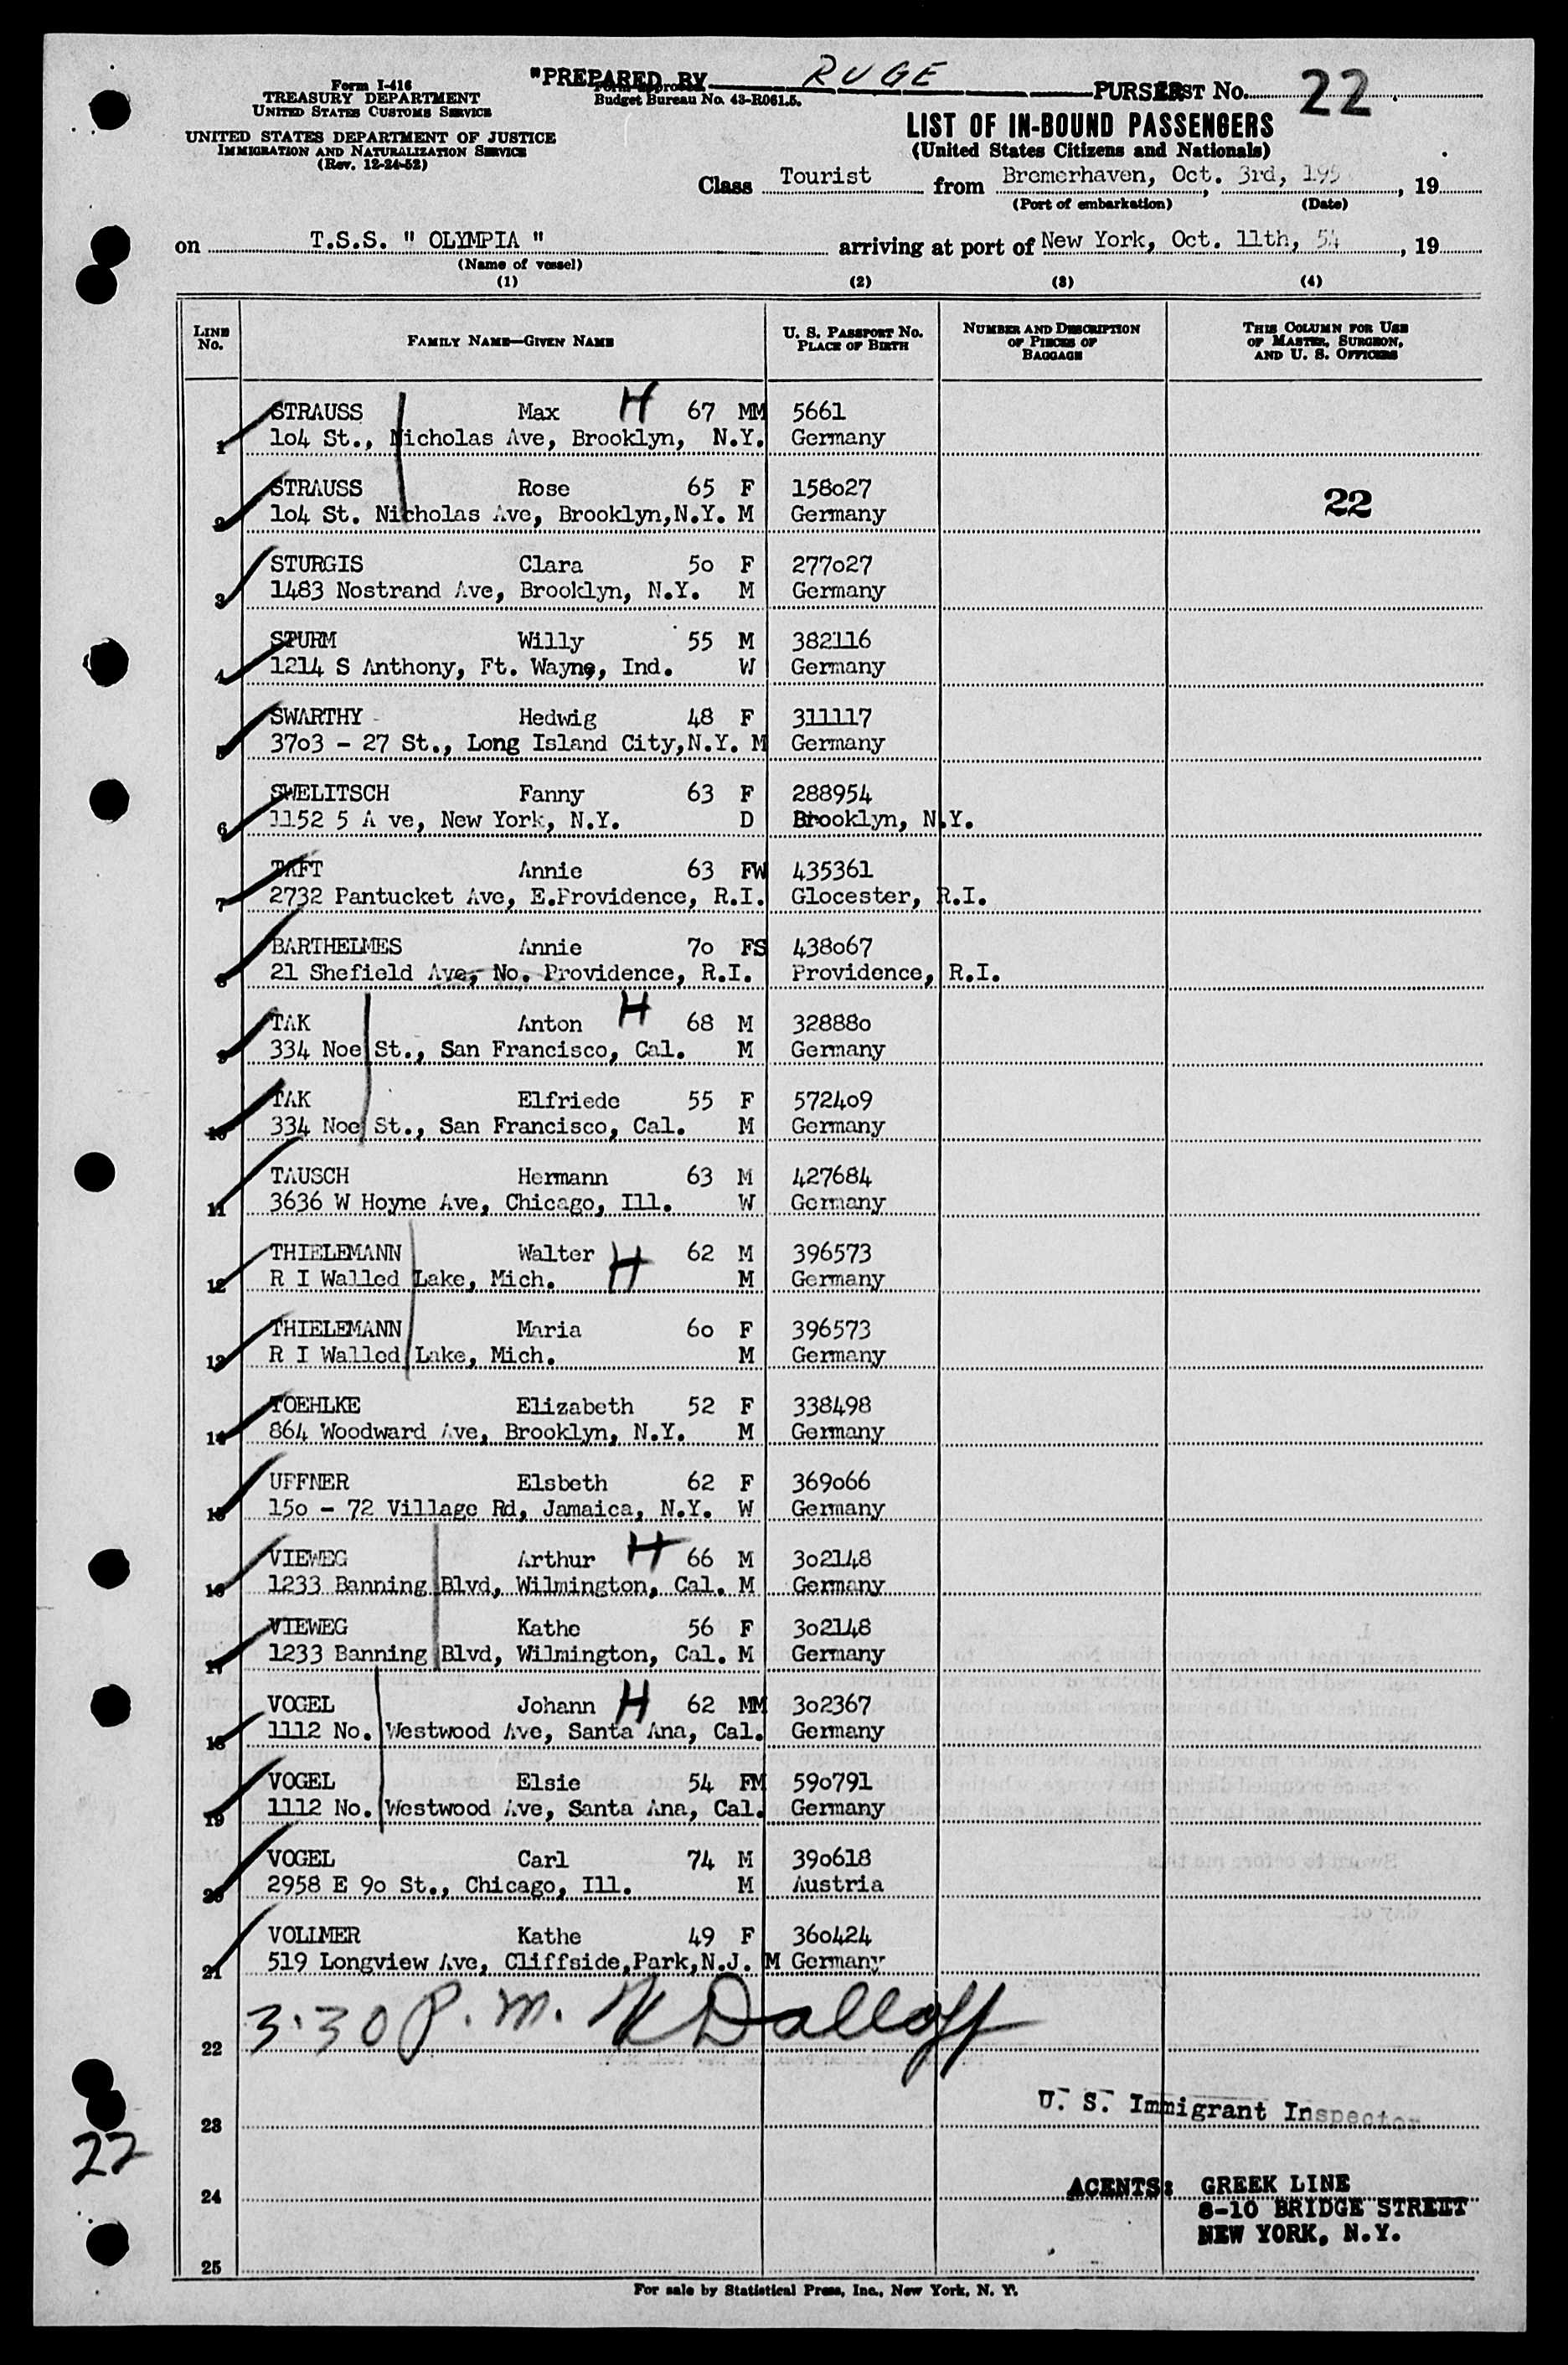 Form I-416
TREASURY DEPARTMENT
UNITED STATES CUSTOMS SERVICE
UNITED STATES DEPARTMENT OF JUSTICE
IMMIGRATION AND NATURALIZATION SERVICE
(Rev. 12-24-52)
"PREPARED BY RUGE PURSER
Form approved
Budget Bureau No. 43-R061.5.
List No. 22
LIST OF IN-BOUND PASSENGERS
(United States Citizens and Nationals)
Class Tourist from Bremerhaven, Oct. 3rd, 195 , 19
(Port of embarkation) (Date)
on T.S.S. " OLYMPIA " arriving at port of New York, Oct. 11th, 54 , 19
(Name of vessel)
(1) (2) (3) (4)
LINE No. FAMILY NAME—GIVEN NAME U. S. PASSPORT No. PLACE OF BIRTH NUMBER AND DESCRIPTION OF PIECES OF BAGGAGE THIS COLUMN FOR USE OF MASTER, SURGEON, AND U. S. OFFICERS
STRAUSS Max H 67 MM 5661
1 1o4 St., Nicholas Ave, Brooklyn, N.Y. Germany
STRAUSS Rose 65 F 158o27 22
2 1o4 St. Nicholas Ave, Brooklyn,N.Y. M Germany
STURGIS Clara 5o F 277o27
3 1483 Nostrand Ave, Brooklyn, N.Y. M Germany
STURM Willy 55 M 382116
4 1214 S Anthony, Ft. Wayne, Ind. W Germany
SWARTHY Hedwig 48 F 311117
5 37o3 - 27 St., Long Island City,N.Y. M Germany
SWELITSCH Fanny 63 F 288954
6 1152 5 A ve, New York, N.Y. D Brooklyn, N.Y.
TAFT Annie 63 FW 435361
7 2732 Pantucket Ave, E.Providence, R.I. Glocester, R.I.
BARTHELMES Annie 7o FS 438o67
8 21 Shefield Ave, No. Providence, R.I. Providence, R.I.
TAK Anton H 68 M 32888o
9 334 Noe St., San Francisco, Cal. M Germany
TAK Elfriede 55 F 5724o9
10 334 Noe St., San Francisco, Cal. M Germany
TAUSCH Hermann 63 M 427684
11 3636 W Hoyne Ave, Chicago, Ill. W Germany
THIELEMANN Walter H 62 M 396573
12 R I Walled Lake, Mich. M Germany
THIELEMANN Maria 6o F 396573
13 R I Walled Lake, Mich. M Germany
TOEHLKE Elizabeth 52 F 338498
14 864 Woodward Ave, Brooklyn, N.Y. M Germany
UFFNER Elsbeth 62 F 369o66
15 15o - 72 Village Rd, Jamaica, N.Y. W Germany
VIEWEG Arthur H 66 M 3o2148
16 1233 Banning Blvd, Wilmington, Cal. M Germany
VIEWEG Kathe 56 F 3o2148
17 1233 Banning Blvd, Wilmington, Cal. M Germany
VOGEL Johann H 62 MM 3o2367
18 1112 No. Westwood Ave, Santa Ana, Cal. Germany
VOGEL Elsie 54 FM 59o791
19 1112 No. Westwood Ave, Santa Ana, Cal. Germany
VOGEL Carl 74 M 39o618
20 2958 E 9o St., Chicago, Ill. M Austria
VOLLMER Kathe 49 F 36o424
21 519 Longview Ave, Cliffside,Park,N.J. M Germany
3.30 P.m. Dalloff
22
U. S. Immigrant Inspector
23
22
24
AGENTS: GREEK LINE
8-10 BRIDGE STREET
NEW YORK, N.Y.
25
For sale by Statistical Press, Inc., New York, N. Y.